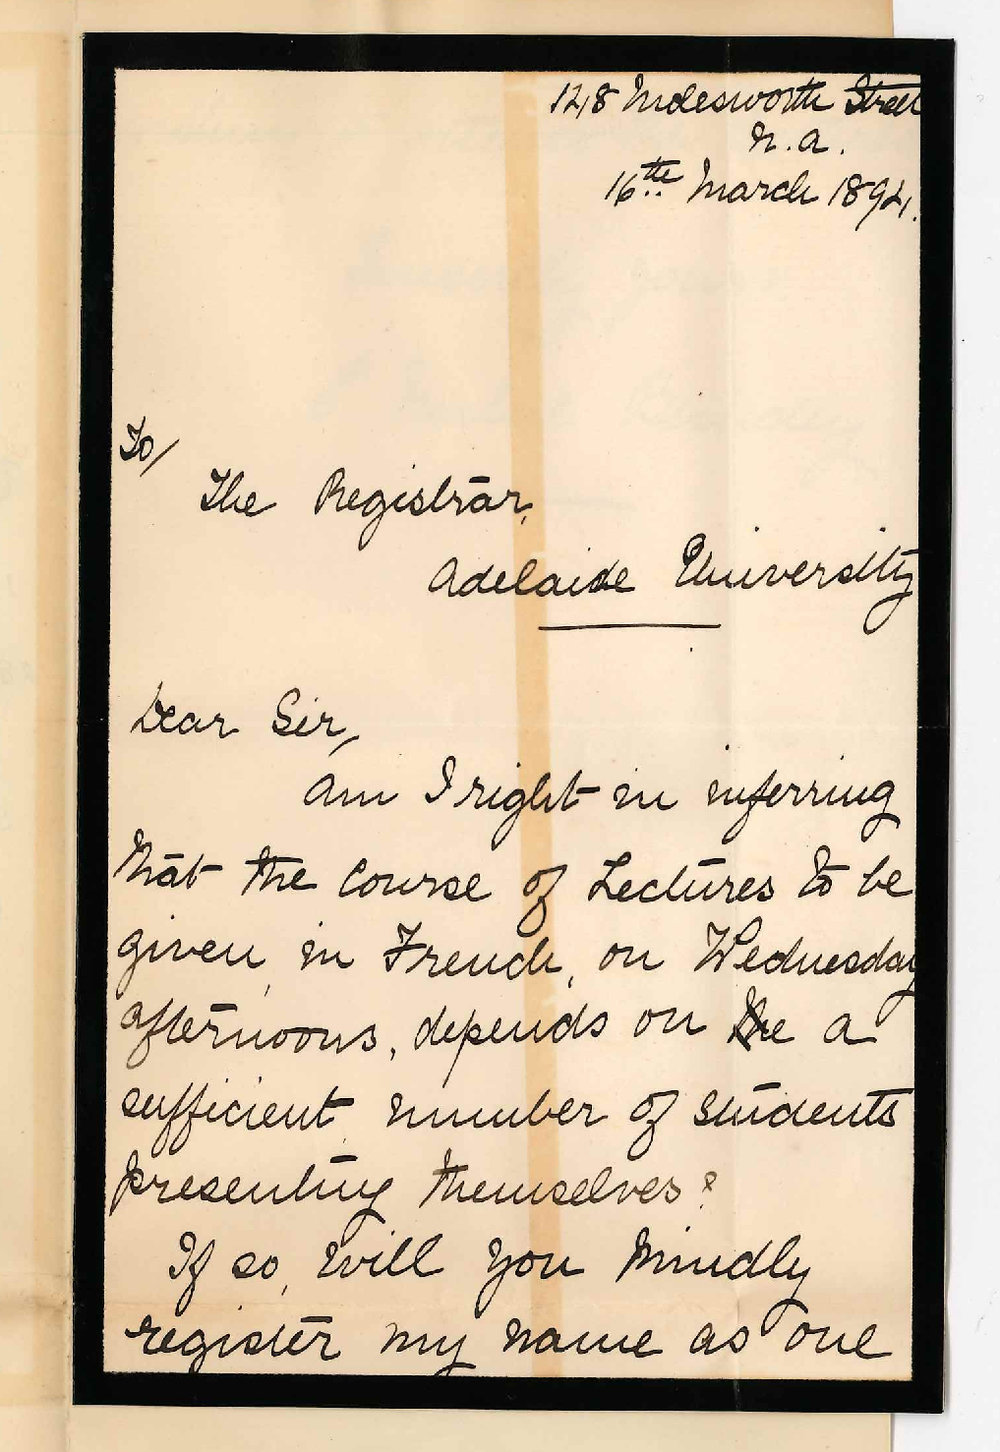 128 Molesworth Street
N.A.
16th March 1894.
To/
The Registrar,
Adelaide University
Dear Sir,
Am I right in inferring
that the Course of Lectures to be
given, in French, on Wednesday
afternoons, depends on the a
sufficient number of students
presenting themselves?
If so, will you kindly
register my name as one